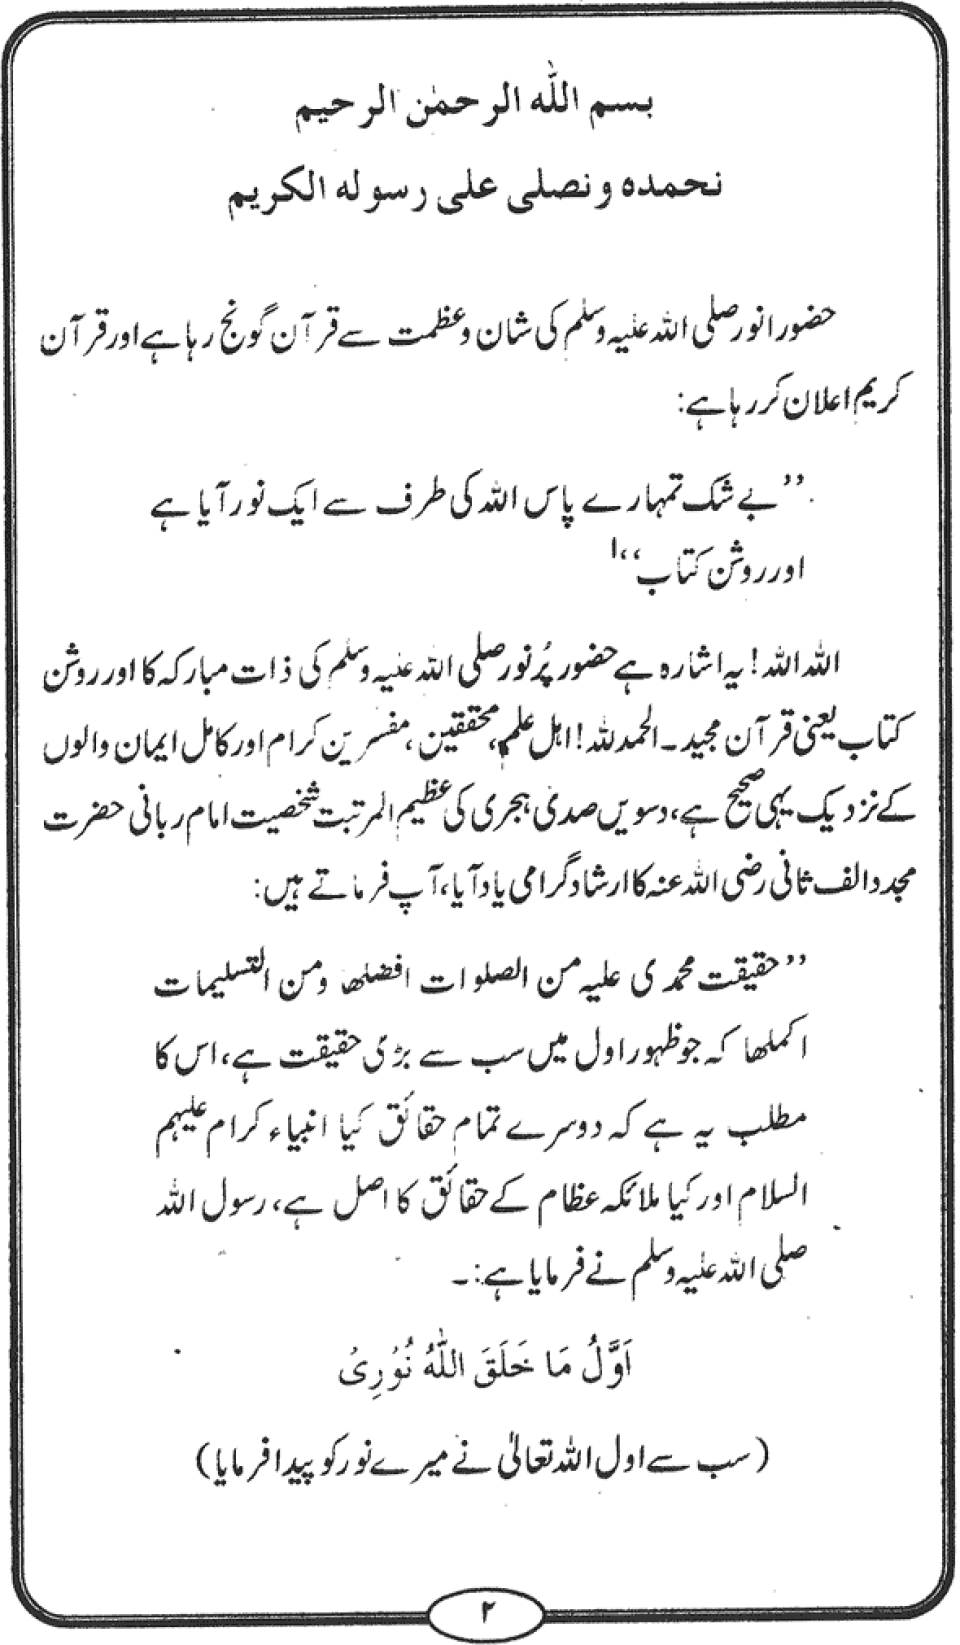 بسم اللہ الرحمٰن الرحیم
نحمدہ و نصلی علی رسولہ الکریم
حضور انور صلی اللہ علیہ وسلم کی شان و عظمت سے قرآن گونج رہا ہے اور قرآن
کریم اعلان کر رہا ہے:
’’بے شک تمہارے پاس اللہ کی طرف سے ایک نور آیا ہے
اور روشن کتاب‘‘ا
اللہ اللہ! یہ اشارہ ہے حضور پُر نور صلی اللہ علیہ وسلم کی ذات مبارکہ کا اور روشن
کتاب یعنی قرآن مجید۔ الحمد للہ! اہل علم، محققین، مفسرین کرام اور کامل ایمان والوں
کے نزدیک یہی صحیح ہے، دسویں صدی ہجری کی عظیم المرتبت شخصیت امام ربانی حضرت
مجدد الف ثانی رضی اللہ عنہ کا ارشاد گرامی یاد آیا، آپ فرماتے ہیں:
’’حقیقت محمدی علیہ من الصلوات افضلھا ومن التسلیمات
اکملھا کہ جو ظہور اول میں سب سے بڑی حقیقت ہے، اس کا
مطلب یہ ہے کہ دوسرے تمام حقائق کیا انبیاء کرام علیہم
السلام اور کیا ملائکہ عظام کے حقائق کا اصل ہے، رسول اللہ
صلی اللہ علیہ وسلم نے فرمایا ہے:۔
اَوَّلُ مَا خَلَقَ اللّٰہُ نُوْرِیْ
(سب سے اول اللہ تعالیٰ نے میرے نور کو پیدا فرمایا)
۲